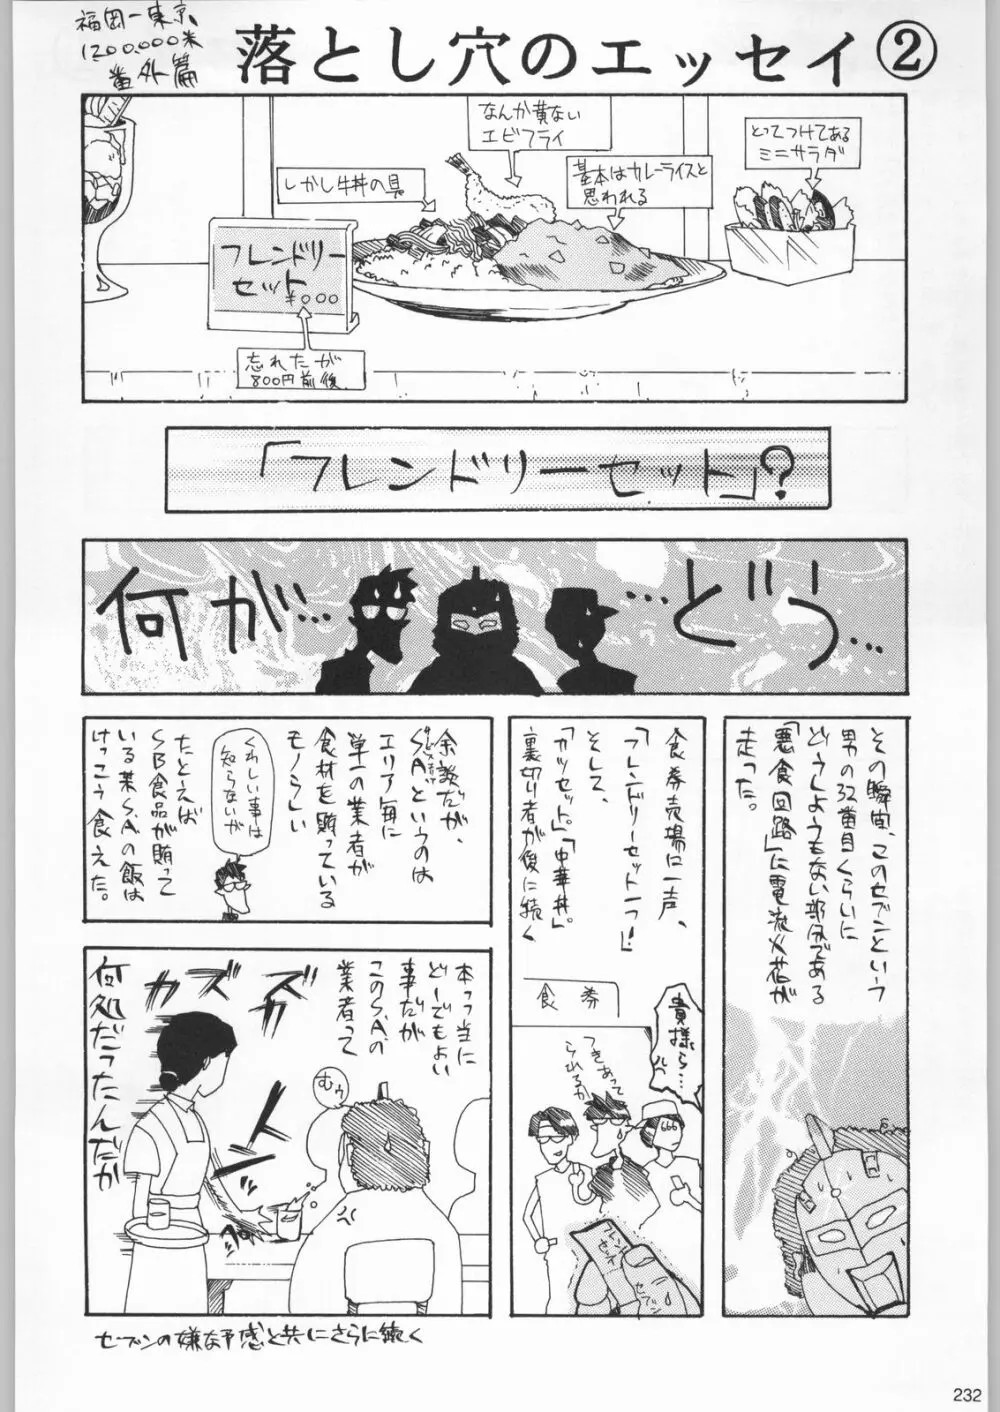 福岡ー東京
1200.000米
番外篇
落とし穴のエッセイ②
なんか黄ない
エビフライ
とってつけてある
ミニサラダ
しかし牛丼の具
基本はカレーライスと
思われる
フレンドリー
セット
¥○○○
忘れたが
800円前後
「フレンドリーセット」?
何が…
…どう…
その瞬間、このセブンという
男の32番目くらいに
どうしようもない部分である
「悪食回路」に電流火花が
走った。
食券売場に一声、
「フレンドリーセットーっ!」
そして、
「カツセット。」「中華丼。」
裏切り者が後に続く
食券
貴様ら…
つきあって
られるか
666
フレンドリー
セット
セブン
余談だが、
S.A.というのは
エリア毎に
単一の業者が
食材を賄っている
モノらしい
くわしい事は
知らないが
たとえば
SB食品が賄って
いる某S.A.の飯は
けっこう食えた。
本っ当に
どーでもよい
事だが
このS.A.の
業者って
ズズズカ
むぅ
何処だったんだか
セブンの嫌な予感と共にさらに続く
232